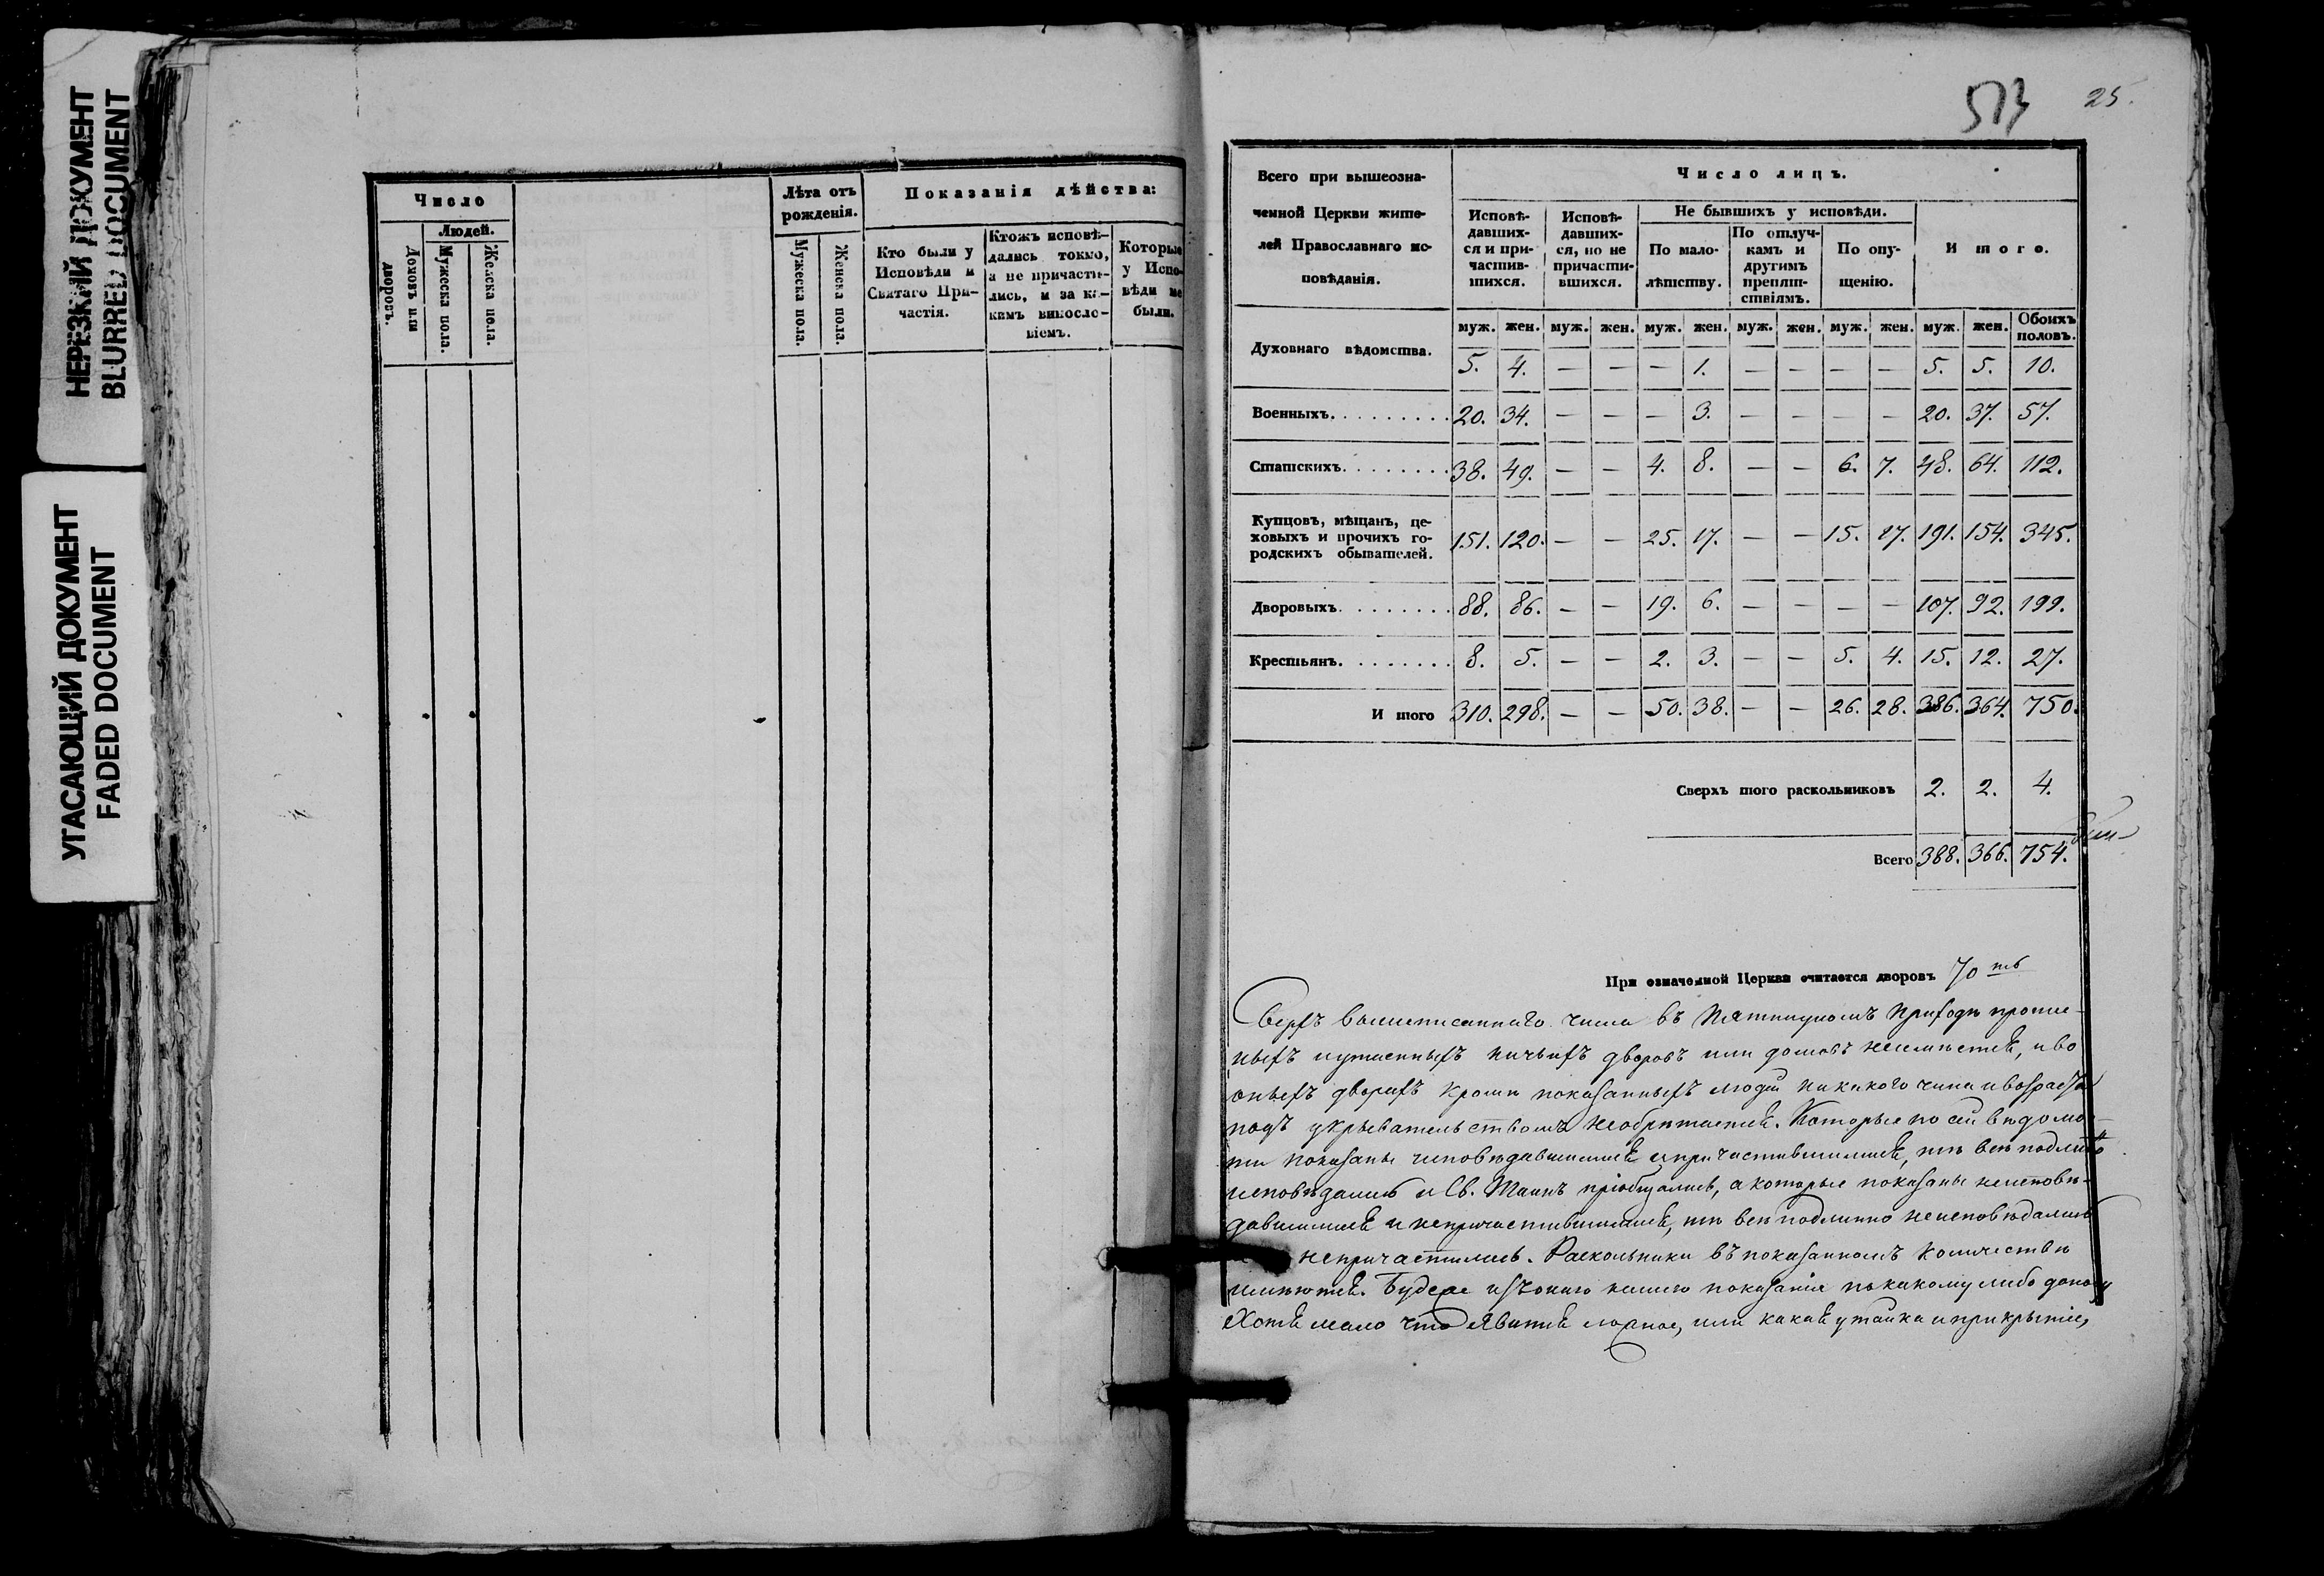 НЕРЕЗКИЙ ДОКУМЕНТ
BLURRED DOCUMENT
УГАСАЮЩИЙ ДОКУМЕНТ
FADED DOCUMENT
Число
Людей.
Домовъ или дворовъ.
Мужеска пола.
Женска пола.
Лѣта отъ
рожденія.
Мужеска пола.
Женска пола.
Показанія дѣйства:
Кто были у
Исповѣди и
Святаго При-
частія.
Ктожъ исповѣ-
дались токмо,
а не причасти-
лись, и за ка-
кимъ винословіемъ.
Которые
у Испо-
вѣди не
были.
513 25.
Всего при вышеозна-
ченной Церкви жите-
лей Православнаго ис-
повѣданія.
Число лицъ.
Исповѣ-
давших-
ся и при-
частив-
шихся.
Исповѣ-
давших-
ся, но не
причасти-
вшихся.
Не бывшихъ у исповѣди.
По мало-
лѣтству.
По отлуч-
камъ и
другимъ
препят-
ствіямъ.
По опу-
щенію.
Итого.
муж. жен. муж. жен. муж. жен. муж. жен. муж. жен. муж. жен. Обоихъ половъ.
Духовнаго вѣдомства. 5. 4. — — — 1. — — — — 5. 5. 10.
Военныхъ. . . . . . . . . 20. 34. — — — 3. — — — — 20. 37. 57.
Статскихъ. . . . . . . . 38. 49. — — 4. 8. — — 6. 7. 48. 64. 112.
Купцовъ, мѣщанъ, це-
ховыхъ и прочихъ го-
родскихъ обывателей. 151. 120. — — 25. 17. — — 15. 17. 191. 154. 345.
Дворовыхъ. . . . . . . . 88. 86. — — 19. 6. — — — — 107. 92. 199.
Крестьянъ. . . . . . . . 8. 5. — — 2. 3. — — 5. 4. 15. 12. 27.
Итого 310. 298. — — 50. 38. — — 26. 28. 386. 364. 750.
Сверхъ того раскольниковъ 2. 2. 4.
Всего 388. 366. 754.
При означенной Церкви считается дворовъ 70ть
Сверхъ вышеписаннаго числа въ Пятницкомъ приходѣ
ныхъ и утаенныхъ ничьихъ дворовъ или домовъ неимѣется, и во
оныхъ дворахъ кромѣ показанныхъ людей никакого чина и возраста
подъ укрывательствомъ необрѣтается. Которые по сей вѣдомос-
ти показаны исповѣдавшимися и причастившимися, тѣ всѣ подлинно
исповѣдались и Св. Таинъ пріобщались, а которые показаны неисповѣ-
давшимися и непричастившимися, тѣ всѣ подлинно неисповѣдались
непричастились. Раскольники въ показанномъ количествѣ
имѣются. Буде же изъ онаго нашего показанія по какому либо доносу
Хотя мало что явится ложное, или какая утайка и прикрытіе,